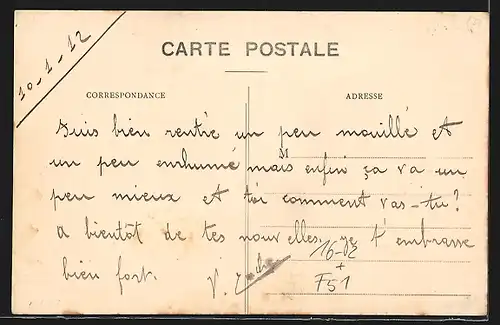 10-1-12
CARTE POSTALE
CORRESPONDANCE
ADRESSE
Suis bien rentré un peu mouillé et
un peu enrhumé mais enfin ça va un
peu mieux et toi comment vas-tu?
A bientôt de tes nouvelles. je t'embrasse
bien fort.
16-02
+
F51